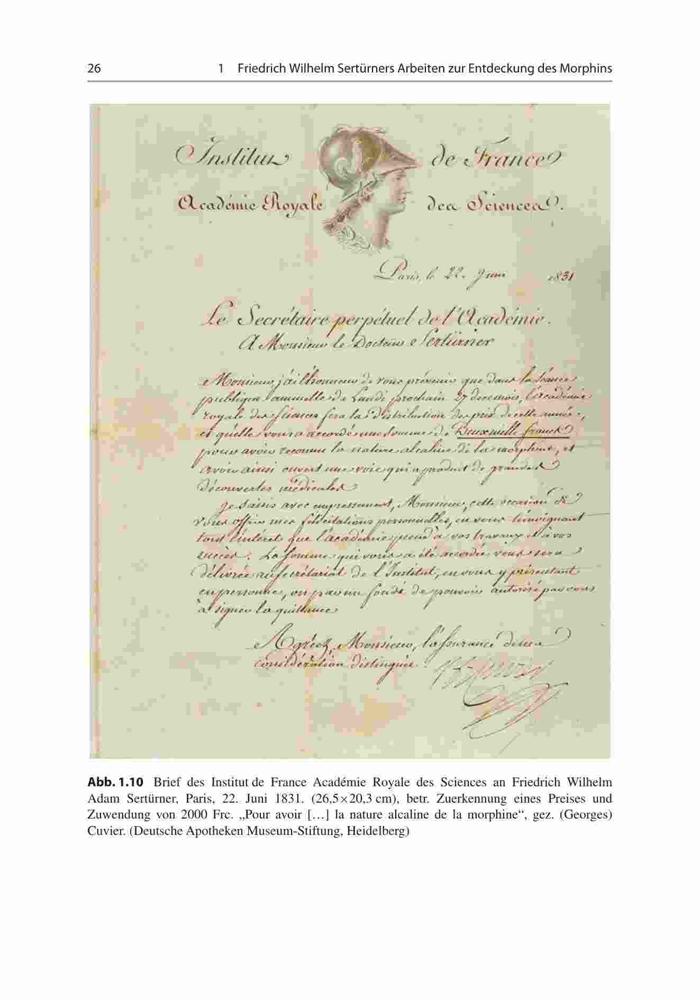 26
1 Friedrich Wilhelm Sertürners Arbeiten zur Entdeckung des Morphins
Institut de France
Académie Royale des Sciences.
Paris, le 22. Juin 1831
Le Secrétaire perpétuel de l'Académie.
A Monsieur le Docteur Sertürner
Monsieur, j'ai l'honneur de vous prévenir que dans la séance
publique annuelle de Lundi prochain 27 l'Académie
royale des sciences fera la distribution des prix de cette année,
et qu'elle vous a accordé une somme de Deux mille francs
pour avoir reconnu la nature alcaline de la morphine, et
avoir ainsi ouvert une voie qui a produit de grandes
découvertes médicales.
Je saisis avec empressement, Monsieur, cette occasion de
vous offrir mes félicitations personnelles, en vous témoignant
tout l'intérêt que l'académie prend à vos travaux et à vos
succès. La somme qui vous a été accordée vous sera
délivrée au secrétariat de l'Institut, en vous y présentant
en personne, ou par un fondé de pouvoir autorisé par vous
à signer la quittance
Agréez, Monsieur, l'assurance de ma
considération distinguée.
Abb. 1.10 Brief des Institut de France Académie Royale des Sciences an Friedrich Wilhelm
Adam Sertürner, Paris, 22. Juni 1831. (26,5×20,3 cm), betr. Zuerkennung eines Preises und
Zuwendung von 2000 Frc. „Pour avoir […] la nature alcaline de la morphine“, gez. (Georges)
Cuvier. (Deutsche Apotheken Museum-Stiftung, Heidelberg)